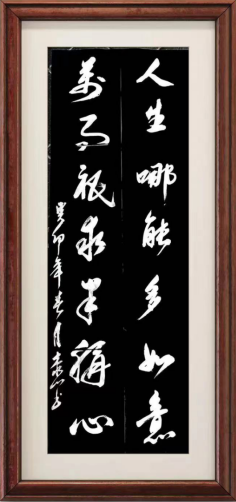 人生哪能多如意
万事祇求半称心
癸卯年春月